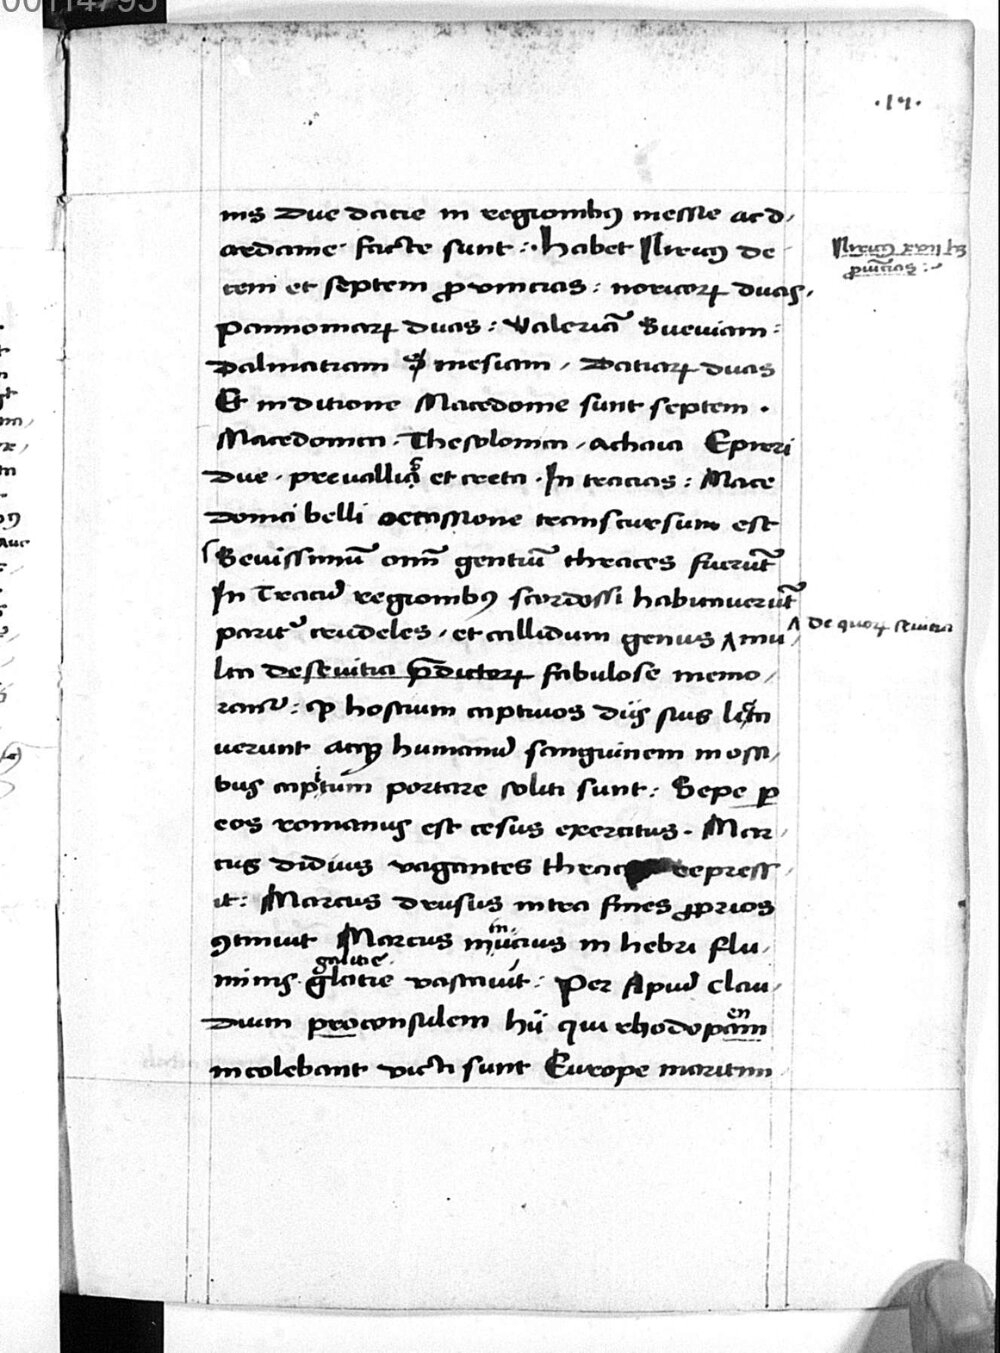 00114795
·17·
nis due dacie in regionibꝰ messie ac d
ardanie facte sunt : habet Ilricꝰ de
cem et septem ꝓvincias : noricoꝝ duas,
pannoniaꝝ duas : valeriā Sueviam :
Dalmatiam mesiam, Datiaꝝ duas
Et in ditione Macedonie sunt septem ·
Macedonia · Thesolonia, achaia Epiri
due · prevallis et creta · In tracias : Mace
donici belli occassione transcursum est
Sevissimū omī gentiū thraces fuerūt
In Tracie regionibꝰ scordossi habitaverūt
parit᷑ crudeles, et callidum genus ʌ mu
lta de sevitia p̄dictoꝝ fabulose memo,
rant᷑ : ꝙ hostium captivos diis suis lita
verunt atqꝫ humanū sanguinem in ossi,
bus capitum portare soliti sunt : Sepe ꝑ
eos romanus est cesus exercitus · Mar,
cus didius vagantes thrac repress
it : Marcus drusus intra fines ꝓprios
ꝯtinuit Marcus minucius in hebri flu,
galitie
minis glatie vastavit : Per Apiū Clau,
en
dium proconsulem hii qui rhodopam
incolebant victi sunt Europe maritim
Ilricꝰ xvii hꝫ
ꝓvīcias :
ʌ de quoꝝ sevitia